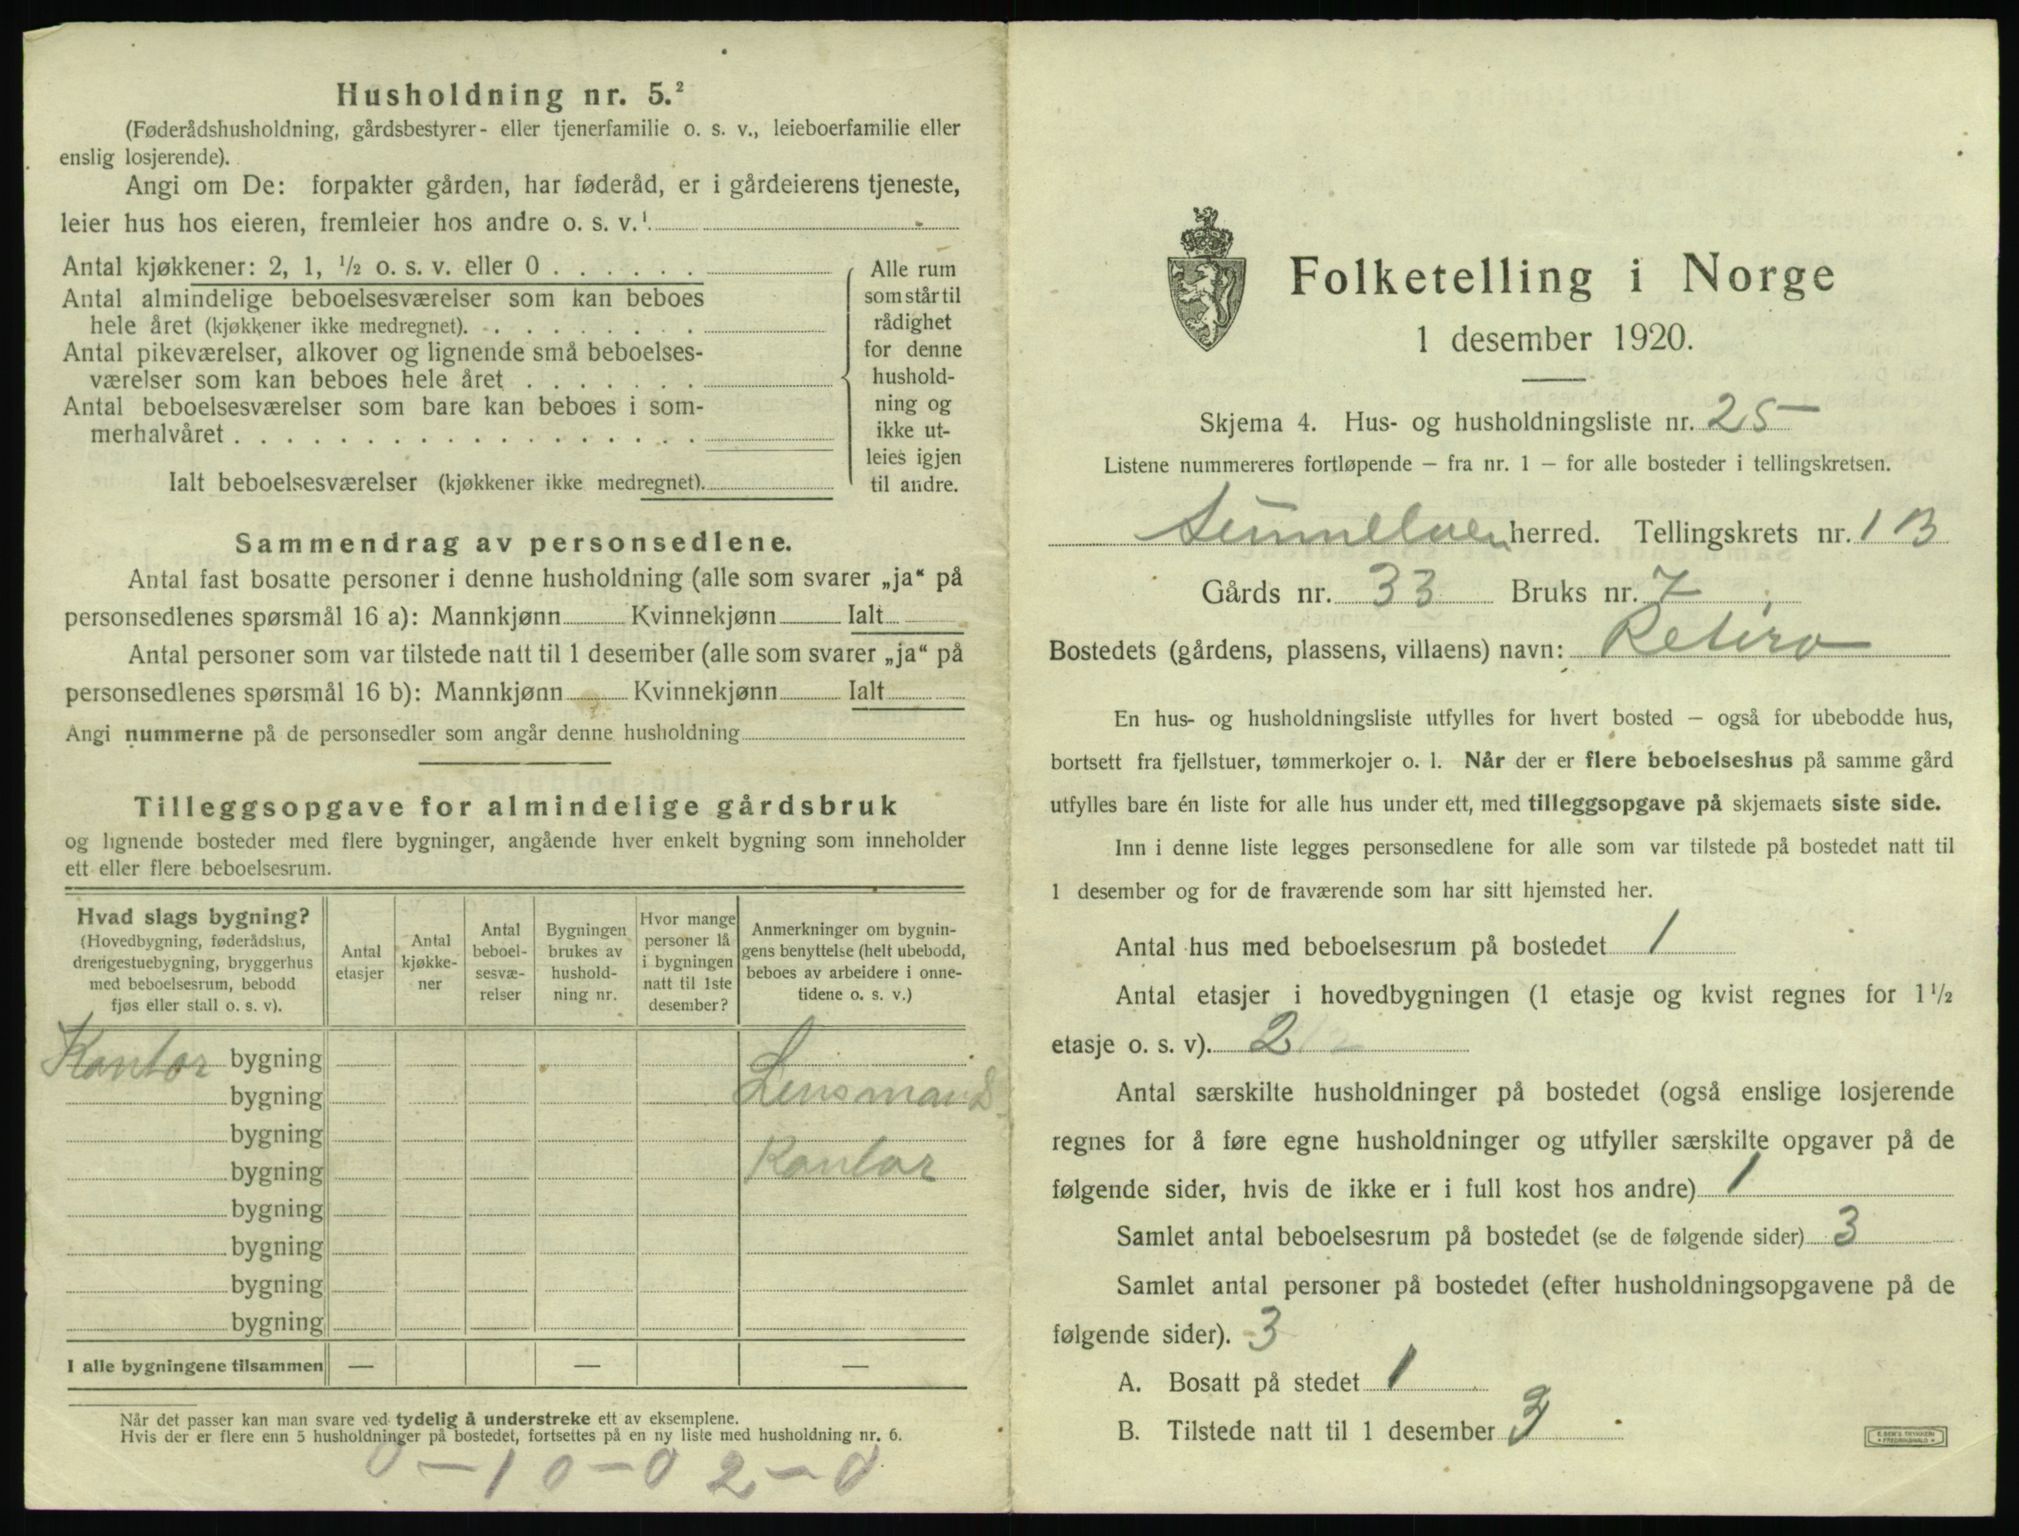 Husholdning nr. 5.²
(Føderådshusholdning, gårdsbestyrer- eller tjenerfamilie o. s. v., leieboerfamilie eller
enslig losjerende).
Angi om De: forpakter gården, har føderåd, er i gårdeierens tjeneste,
leier hus hos eieren, fremleier hos andre o. s. v.¹
Antal kjøkkener: 2, 1, ½ o. s. v. eller 0
Antal almindelige beboelsesværelser som kan beboes
hele året (kjøkkener ikke medregnet).
Antal pikeværelser, alkover og lignende små beboelses-
værelser som kan beboes hele året
Antal beboelsesværelser som bare kan beboes i som-
merhalvåret
Ialt beboelsesværelser (kjøkkener ikke medregnet).
Alle rum
som står til
rådighet
for denne
hushold-
ning og
ikke ut-
leies igjen
til andre.
Sammendrag av personsedlene.
Antal fast bosatte personer i denne husholdning (alle som svarer „ja“ på
personsedlenes spørsmål 16 a): Mannkjønn Kvinnekjønn Ialt
Antal personer som var tilstede natt til 1 desember (alle som svarer „ja“ på
personsedlenes spørsmål 16 b): Mannkjønn Kvinnekjønn Ialt
Angi nummerne på de personsedler som angår denne husholdning
Tilleggsopgave for almindelige gårdsbruk
og lignende bosteder med flere bygninger, angående hver enkelt bygning som inneholder
ett eller flere beboelsesrum.
Hvad slags bygning?
(Hovedbygning, føderådshus,
drengestuebygning, bryggerhus
med beboelsesrum, bebodd
fjøs eller stall o. s. v).
Antal
etasjer
Antal
kjøkke-
ner
Antal
beboel-
sesvæ-
relser
Bygningen
brukes av
hushold-
ning nr.
Hvor mange
personer lå
i bygningen
natt til 1ste
desember?
Anmerkninger om bygnin-
gens benyttelse (helt ubebodd,
beboes av arbeidere i onne-
tidene o. s. v.)
Kontor bygning
bygning Lensmand
bygning
bygning Kontor
bygning
bygning
bygning
bygning
I alle bygningene tilsammen — — —
Når det passer kan man svare ved tydelig å understreke ett av eksemplene.
Hvis der er flere enn 5 husholdninger på bostedet, fortsettes på en ny liste med husholdning nr. 6.
0 – 1 0 – 0 2 – 0
Folketelling i Norge
1 desember 1920.
Skjema 4. Hus- og husholdningsliste nr. 25
Listene nummereres fortløpende – fra nr. 1 – for alle bosteder i tellingskretsen.
Sunnelven herred. Tellingskrets nr. 1 B
Gårds nr. 33 Bruks nr. 7
Bostedets (gårdens, plassens, villaens) navn: Retiro
En hus- og husholdningsliste utfylles for hvert bosted – også for ubebodde hus,
bortsett fra fjellstuer, tømmerkojer o. l. Når der er flere beboelseshus på samme gård
utfylles bare én liste for alle hus under ett, med tilleggsopgave på skjemaets siste side.
Inn i denne liste legges personsedlene for alle som var tilstede på bostedet natt til
1 desember og for de fraværende som har sitt hjemsted her.
Antal hus med beboelsesrum på bostedet 1
Antal etasjer i hovedbygningen (1 etasje og kvist regnes for 1½
etasje o. s. v). 2
Antal særskilte husholdninger på bostedet (også enslige losjerende
regnes for å føre egne husholdninger og utfyller særskilte opgaver på de
følgende sider, hvis de ikke er i full kost hos andre) 1
Samlet antal beboelsesrum på bostedet (se de følgende sider) 3
Samlet antal personer på bostedet (efter husholdningsopgavene på de
følgende sider). 3
A. Bosatt på stedet 1
B. Tilstede natt til 1 desember 3